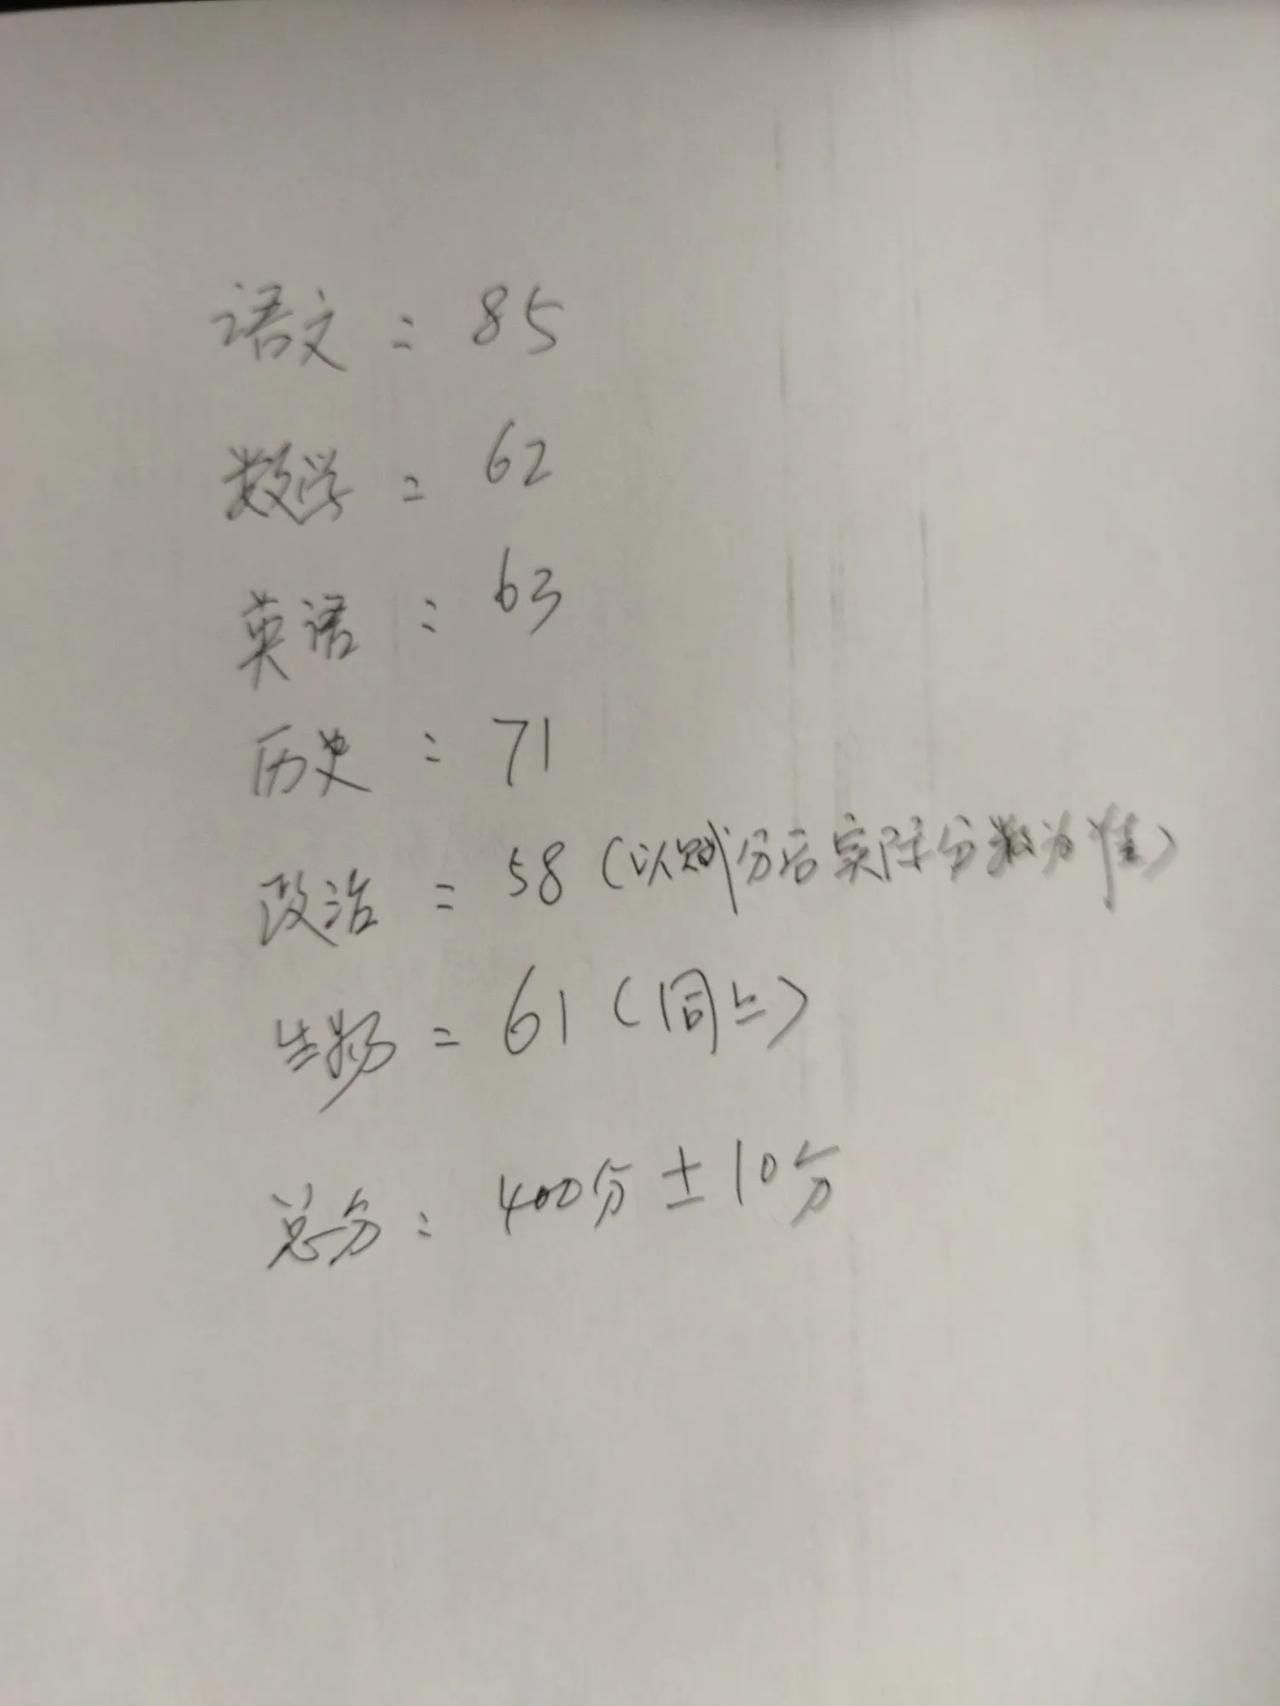 语文：85
数学：62
英语：63
历史：71
政治：58（以赋分后实际分数为准）
生物：61（同上）
总分：400分±10分